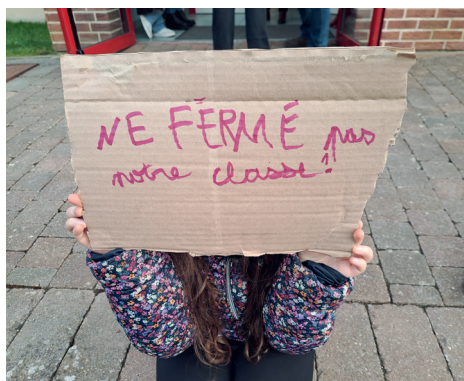 NE FERMÉ pas
notre classe!